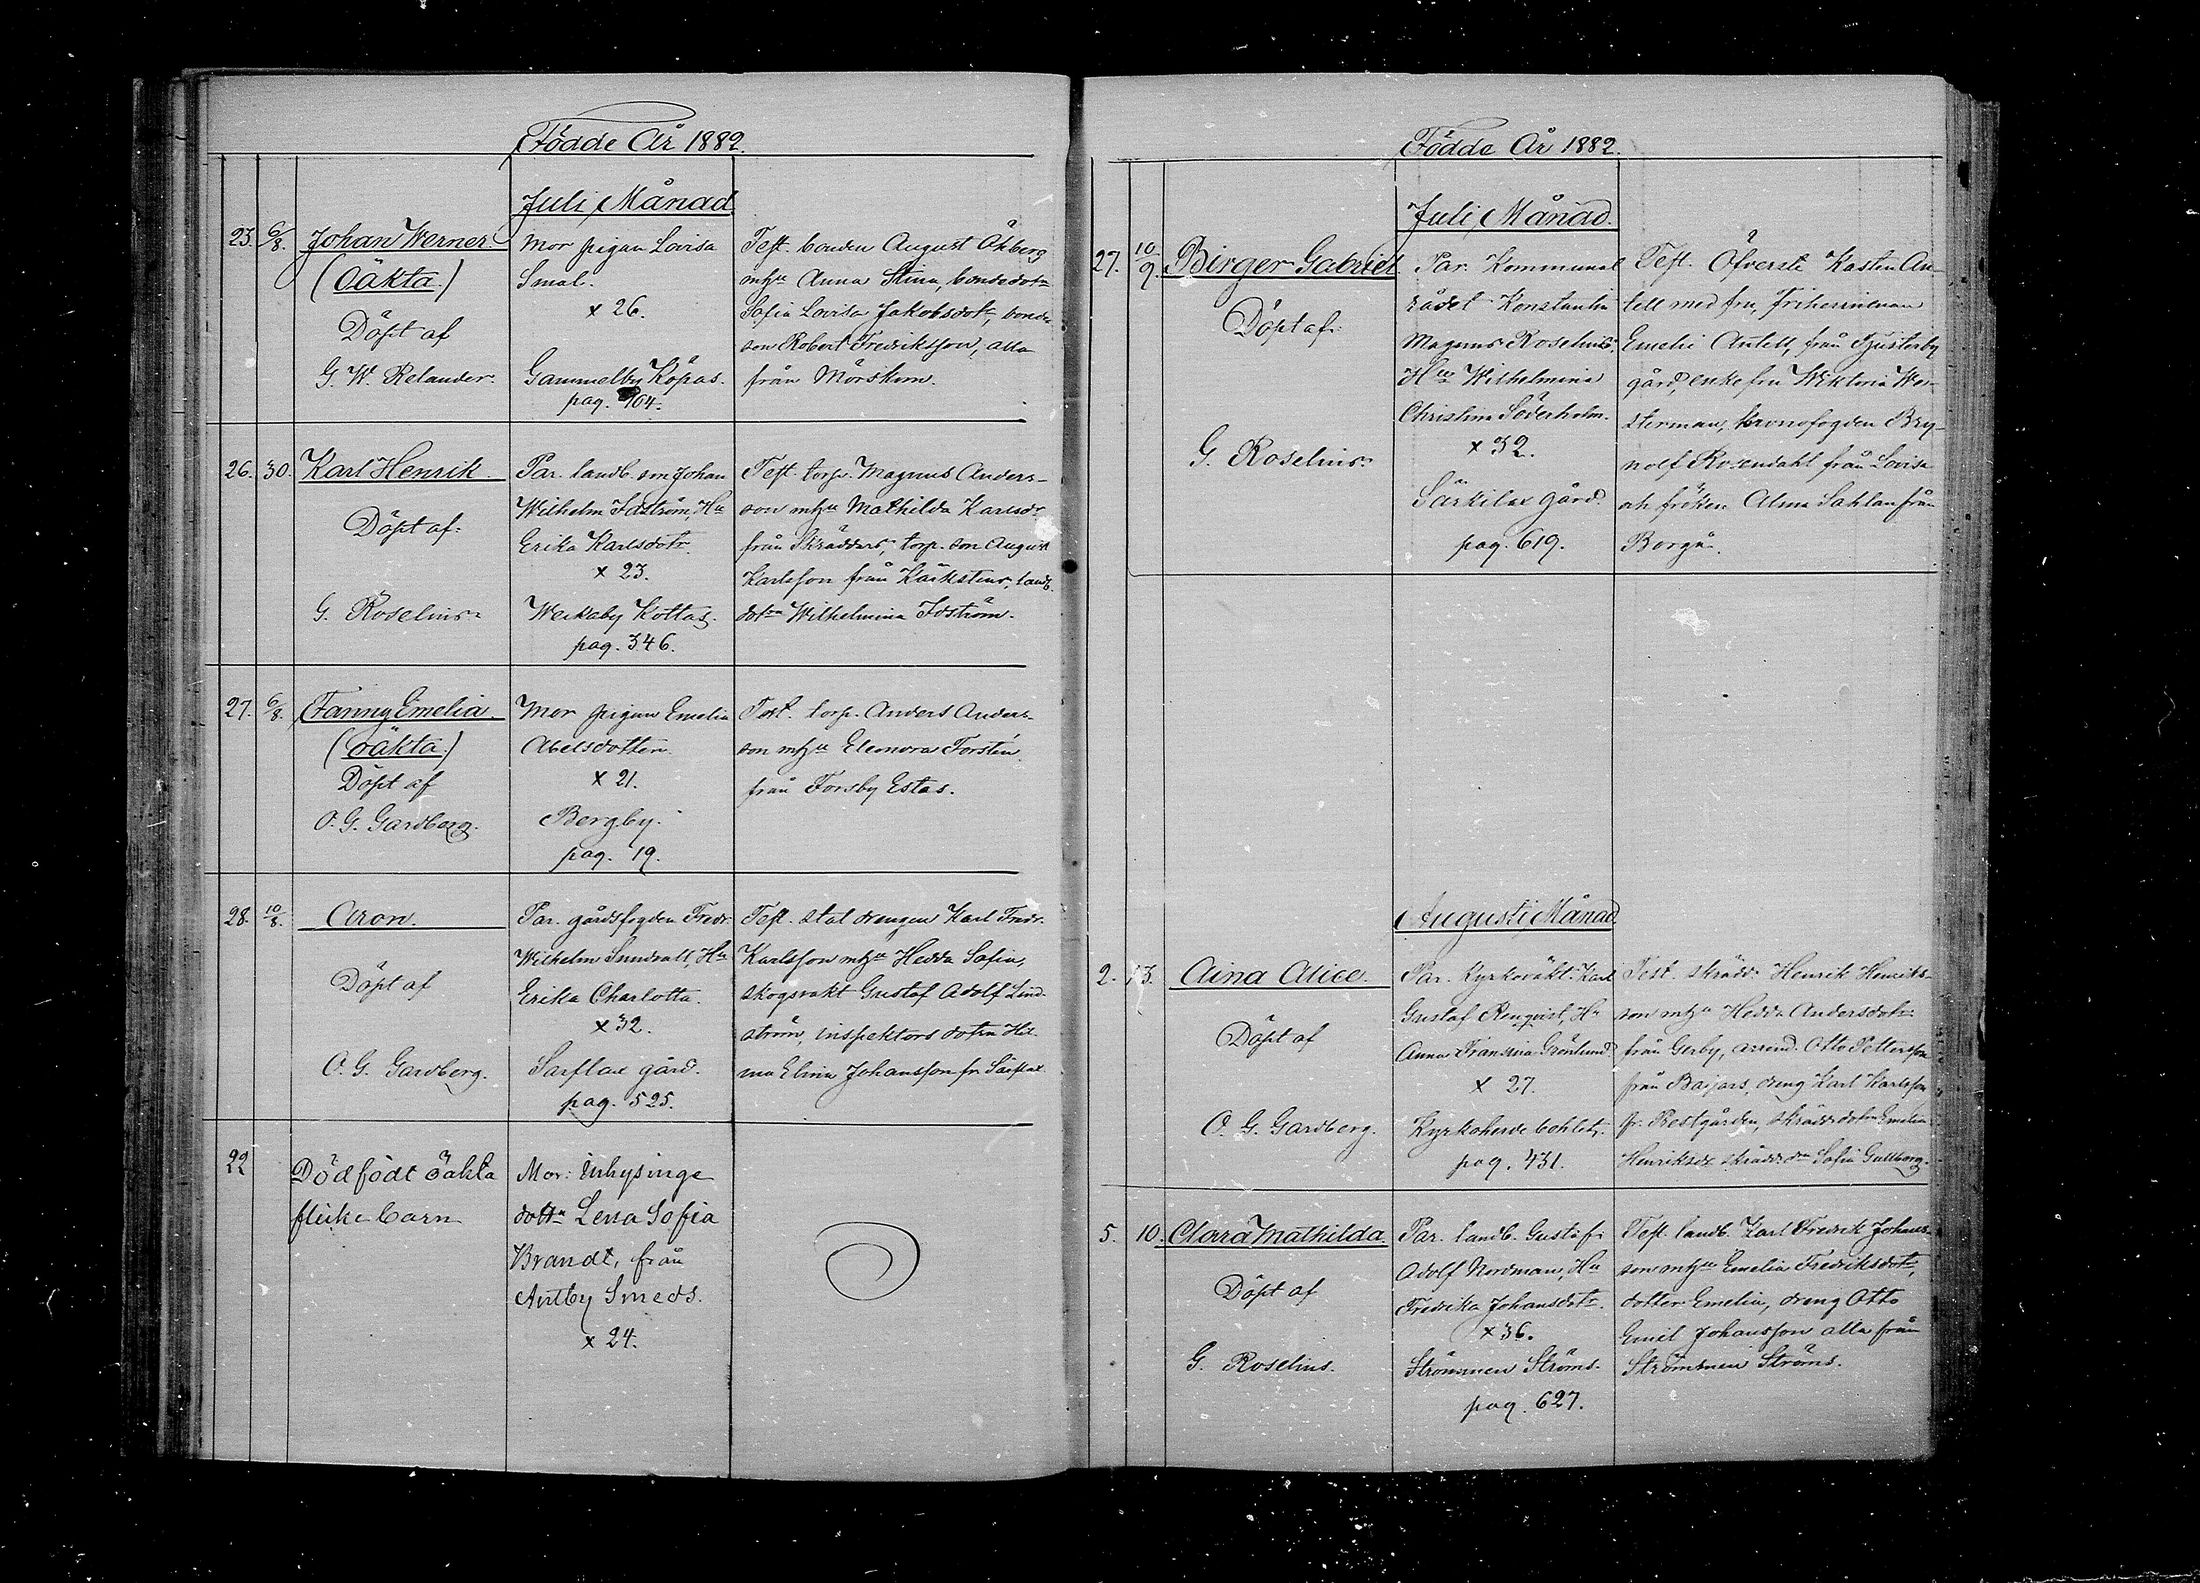 Födde År 1882.
Juli Månad
23. 6/8. Johan Werner
(Oäkta.)
Döpt af
G. W. Relander.
Mor pigan Lovisa
Smal.
x 26.
Gammelby Köpas.
pag. 104.
Test. bonden August Åkberg
mhu Anna Stina, bondedotn
Sofia Lovisa Jakobsdotr, bonde
son Robert Fredriksson, alla
från Mörskom.
26. 30. Karl Henrik.
Döpt af:
G. Roselius.
Par. landb. son Johan
Wilhelm Idström, Hu
Erika Karlsdotr.
x 23.
Weckaby Kottas.
pag. 346.
Test. torp. Magnus Anders-
son mhu Mathilda Karlsdr
från Skräddars, torp. son August
Karlsson från Käkstens, landb.
dotrn Wilhelmina Idström.
27. 6/8. Fanny Emelia
(oäkta.)
Döpt af
O. G. Gardberg.
Mor pigan Emelia
Abelsdotter.
x 21.
Bergby.
pag. 19.
Test. torp. Anders Anders-
son mhu Eleonora Forstén
från Forsby Estas.
28. 10/8. Aron.
Döpt af
O. G. Gardberg.
Par. gårdsfogden Fredr.
Wilhelm Sundvall, Hu
Erika Charlotta.
x 32.
Sarflax gård.
pag. 525.
Test. stat drengen Karl Fredr.
Karlsson mhu Hedda Sofia,
skogsvakt Gustaf Adolf Lind-
ström, inspektors dotrn Hil-
ma Elina Johansson fr. Sarflax
22 Dödfödt oäkta
flickebarn
Mor: Inhysinge
dottn Lena Sofia
Brandt, från
Antby Smeds.
x 24.
Födde År 1882.
Juli Månad.
27. 10/9. Birger Gabriel.
Döpt af:
G. Roselius.
Par. Kommunal
rådet Konstantin
Magnus Roselius,
Hu Wilhelmina
Christina Söderholm.
x 32.
Särkilax gård
pag. 619.
Test. Öfverste Kasten An-
tell med fru, friherrinnan
Emelie Antell, från Tjusterby
gård, enkefru Wiktoria We-
sterman, kronofogden Bry-
nolf Rosendahl från Lovisa
och fröken Alma Sahlan från
Borgå.
Augusti Månad.
2. 13. Aina Alice.
Döpt af
O. G. Gardberg.
Par. Kyrkoväkt. Karl
Gustaf Renqvist, Hu
Anna Fransina Grönlund.
x 27.
Kyrkoherde bohlet.
pag. 431.
Test. skrädd. Henrik Henriks-
son mhu Hedda Andersdotr
från Gerby, arrend. Otto Pettersson
från Baijars, dreng Karl Karlsson
fr. Prestgården, skrädd dotrn Emelia
Henriksdr skrädd. dn Sofia Gullberg.
5. 10. Clara Mathilda.
Döpt af
G. Roselius.
Par. landb. Gustaf
Adolf Nordman, Hu
Fredrika Johansdotr.
x 36.
Strömmen Ströms.
pag. 627.
Test. landb. Karl Fredrik Johans-
son mhu Emelia Fredriksdotr,
dotter Emelia, dreng Otto
Emil Johansson alla från
Strömmen Ströms.